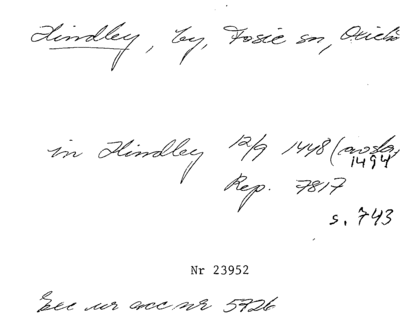 Hindley, by, Fosie sn, Oxie
in Hindley 12/9 1448 (avskr.
1494
Rep. 7817
s. 743
Nr 23952
Exc ur acc nr 5726